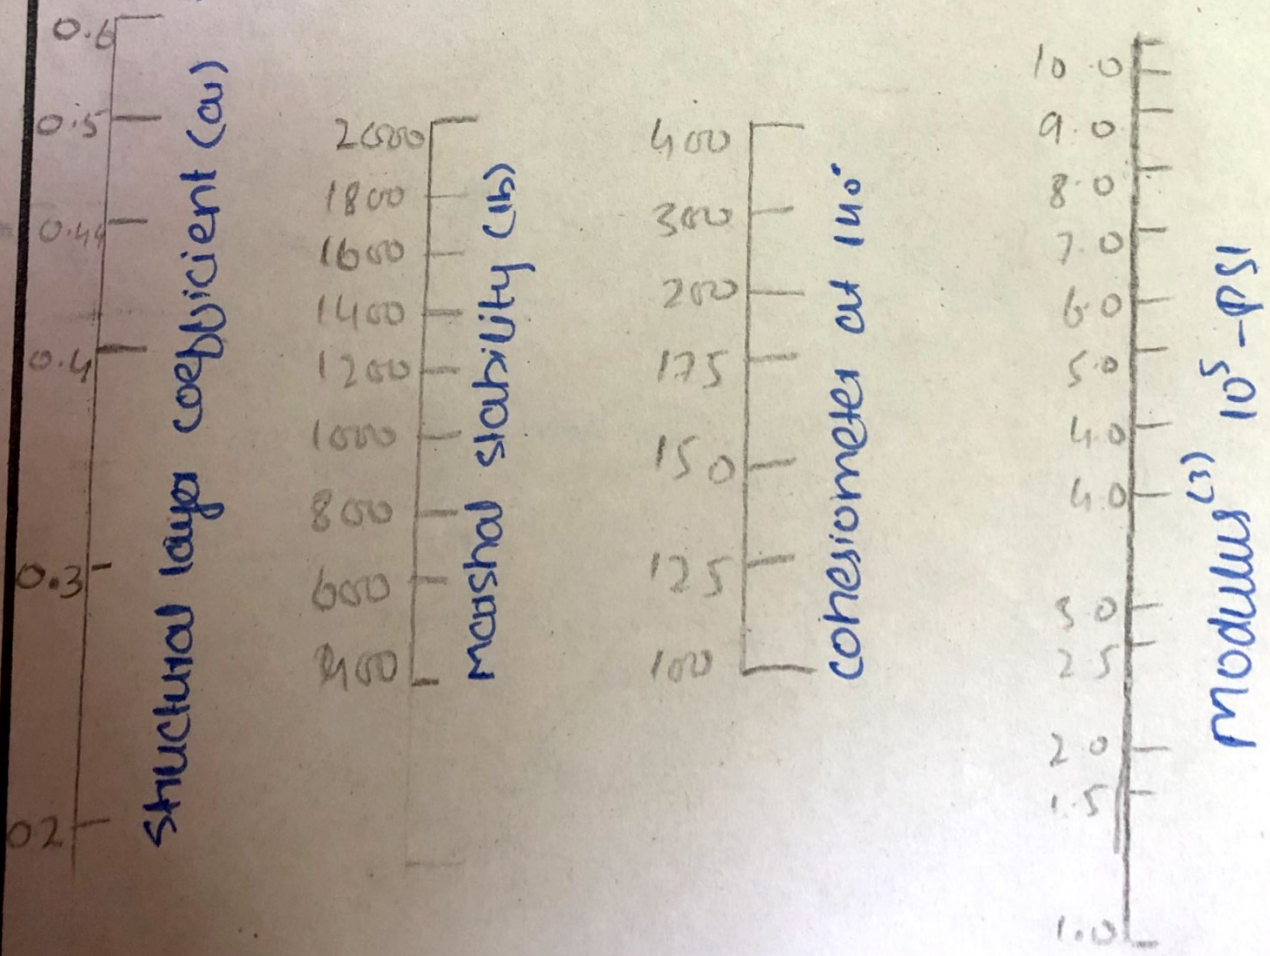 0.6
0.5
0.44
0.4
0.3
02
Structural layer coefficient (a1)
2000
1800
1600
1400
1200
1000
800
600
400
Marshal stability (lb)
400
300
200
175
150
125
100
cohesiometer at 140°
10.0
9.0
8.0
7.0
6.0
5.0
4.0
4.0
3.0
2.5
2.0
1.5
1.0
Modulus(3) 10^5 - PSI